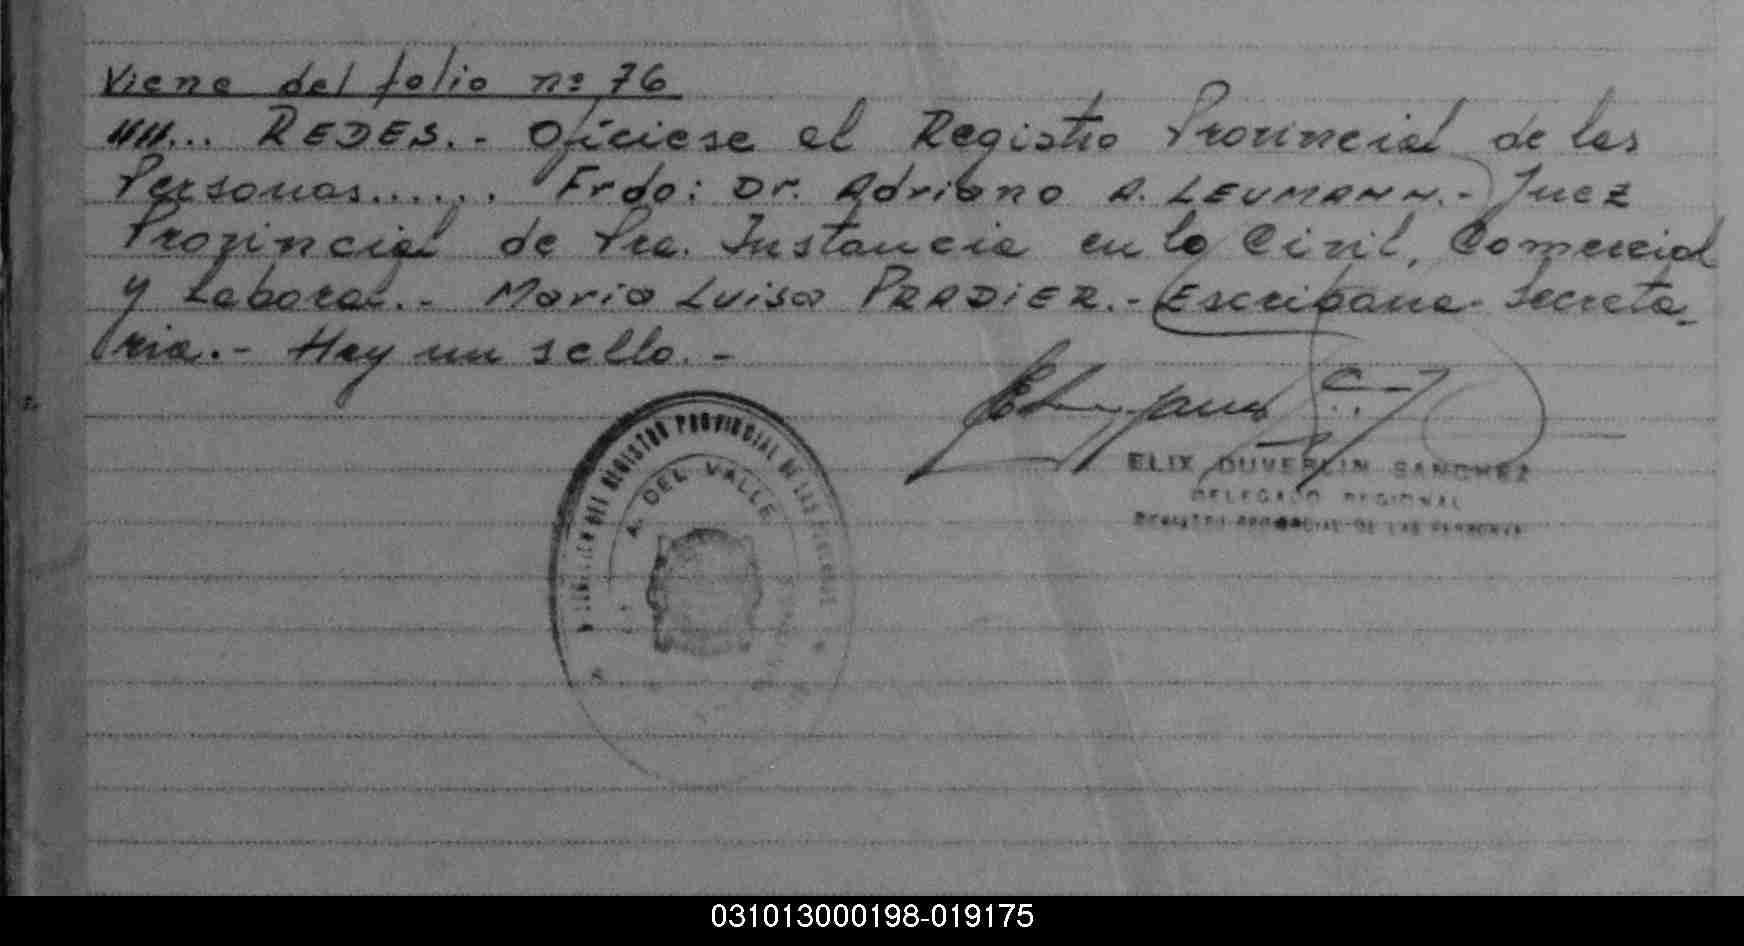 Viene del folio nº 76
"".. REDES.- Oficiese al Registro Provincial de las
Personas...... Frdo: Dr. Adriano A. LEUMANN.- Juez
Provincial de Pra. Instancia en lo Civil, Comercial
y Laboral.- Maria Luisa PRADIER.- Escribana- Secreta-
ria.- Hay un sello.-
REGISTRO PROVINCIAL DE LAS
A. DEL VALLE
ELIX DUVERLIN SANCHEZ
DELEGADO REGIONAL
REGISTRO PROVINCIAL DE LAS PERSONAS
031013000198-019175